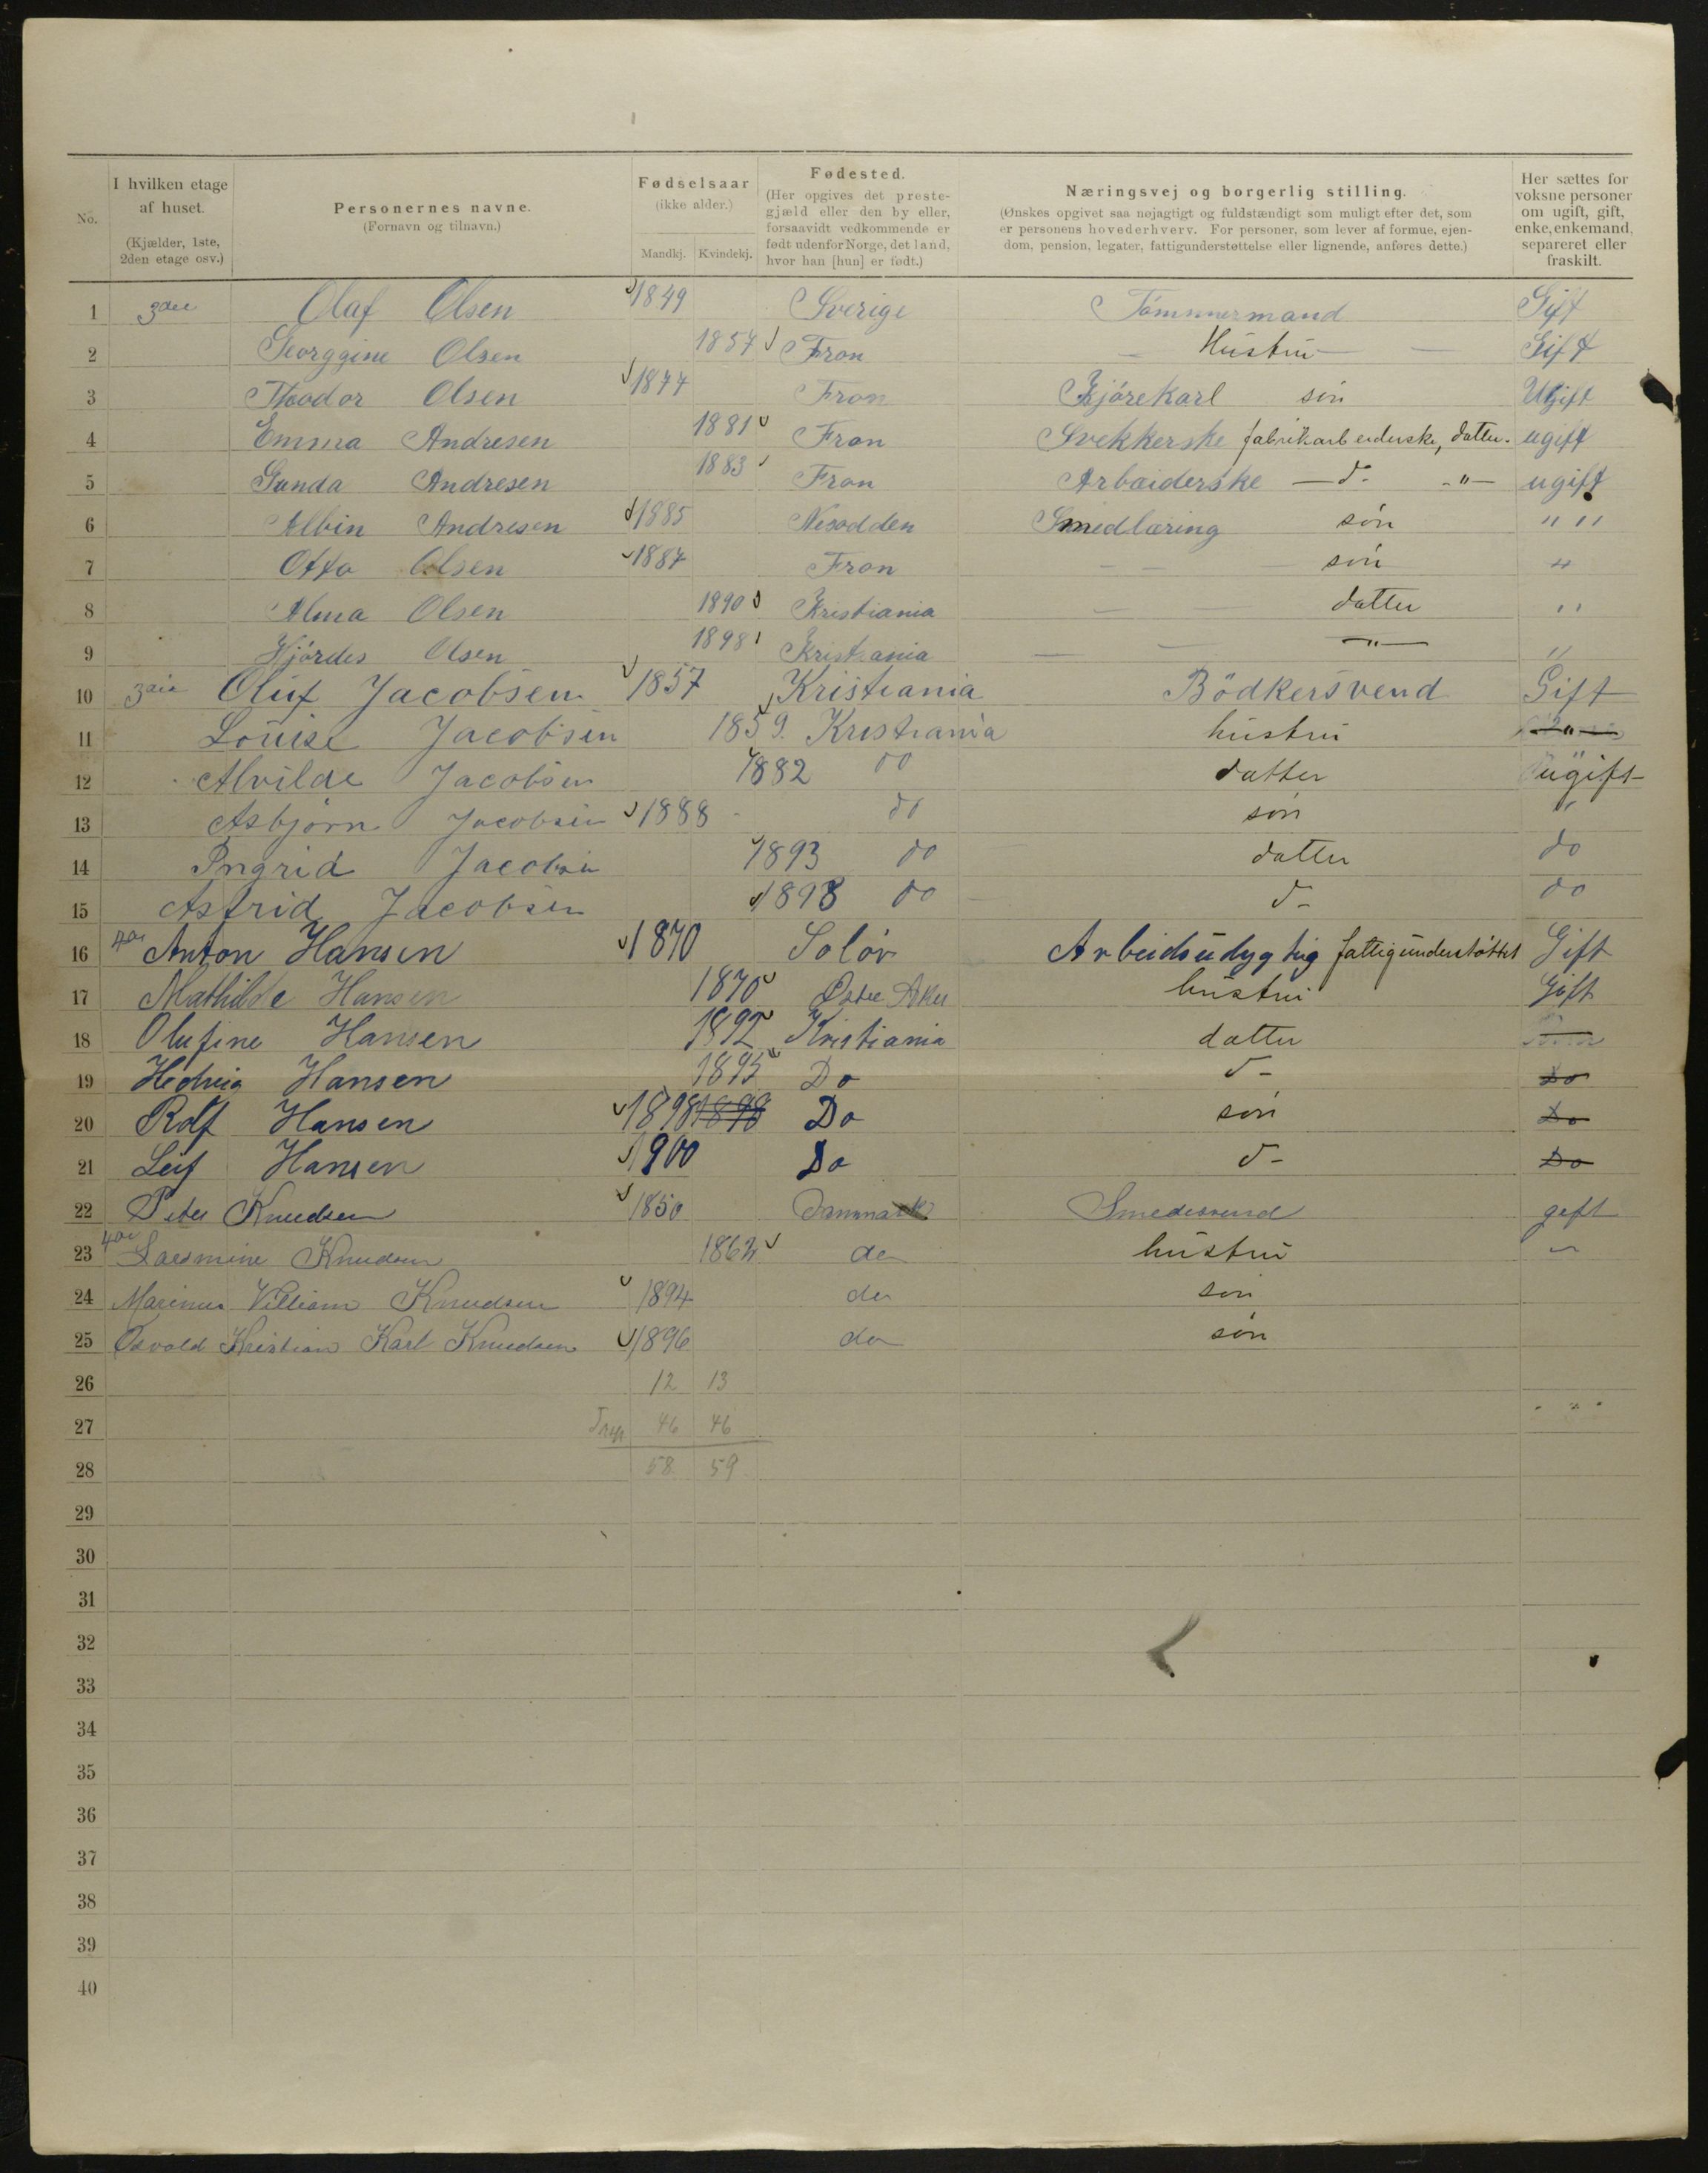 No. | I hvilken etage af huset. (Kjælder, 1ste, 2den etage osv.) | Personernes navne. (Fornavn og tilnavn.) | Fødselsaar (ikke alder.) Mandkj. Kvindekj. | Fødested. (Her opgives det prestegjæld eller den by eller, forsaavidt vedkommende er født udenfor Norge, det land, hvor han [hun] er født.) | Næringsvej og borgerlig stilling. (Ønskes opgivet saa nøjagtigt og fuldstændigt som muligt efter det, som er personens hovederhverv. For personer, som lever af formue, ejendom, pension, legater, fattigunderstøttelse eller lignende, anføres dette.) | Her sættes for voksne personer om ugift, gift, enke, enkemand, separeret eller fraskilt.
1 Olaf Olsen 1849 Sverige Tömmermand Gift
2 Georggine Olsen 1857 Fron — Hustru — Gift
3 Theodor Olsen 1877 Fron Kjörekarl sön Ugift
4 Emma Andresen 1881 Fron fabrikarbeiderske, datter. ugift
5 Gunda Andresen 1883 Fron Arbæiderske — d- -"- ugift
6 Albin Andresen 1885 Nesodden Smedlæring sön " "
7 Otto Olsen 1887 Fron — — sön "
8 Alma Olsen 1890 Kristiania — — datter "
9 Hjördes Olsen 1898 Kristiania — — —"— "
10 Oluf Jacobsen 1857 Kristiania Bödkersvend Gift
11 Louise Jacobsen 1859. Kristiania hustru "
12 Alvilde Jacobsen 1882 do datter ugift
13 Asbjørn Jacobsen 1888 do søn "
14 Ingrid Jacobsen 1893 do datter do
15 Astrid Jacobsen 1898 do d- do
16 Anton Hansen 1870 Solör Arbeidsudygtig fattigunderstöttet Gift
17 Mathilde Hansen 1870 Østre Aker hustru Gift
18 Olufine Hansen 1892 Kristiania datter
19 Hedvig Hansen 1895 Do d- Do
20 Rolf Hansen 1898 1898 Do søn Do
21 Leif Hansen 1900 Do d- Do
22 Peter Knudsen 1850 Danmark Smedesvend gift
23 Knudsen 1862 do hustru "
24 Marinus Villiam Knudsen 1894 do søn
25 Osvald Kristian Karl Knudsen 1896 do søn
26 12 13
27 46 46
28 58 59
29
30
31
32
33
34
35
36
37
38
39
40